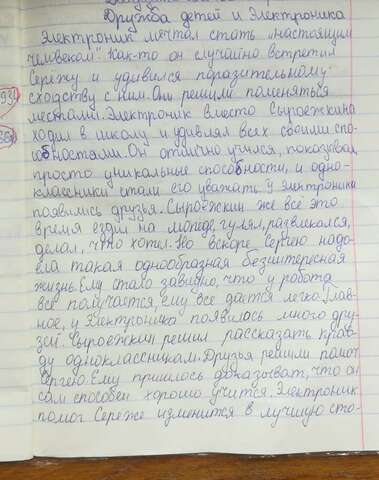 Дружба детей и Электроника
Электроник мечтал стать „настоящим
человеком". Как-то он случайно встретил
Сережу и удивился поразительному
сходству с ним. Они решили поменяться
местами. Электроник вместо Сыроежкина
ходил в школу и удивлял всех своими спо-
собностями. Он отлично учился, показывал
просто уникальные способности, и одно-
классники стали его уважать. У Электроника
появились друзья. Сыроежкин же всё это
время ездил на мопеде, гулял, развлекался,
делал, что хотел. Но вскоре Сергею надо-
ела такая однообразная безинтересная
жизнь. Ему стало завидно, что у робота
все получается, ему все дается легко. Глав-
ное, у Электроника появилось много дру-
зей. Сыроежкин решил рассказать прав-
ду одноклассникам. Друзья решили помоч
Сергею. Ему пришлось доказывать, что он
сам способен хорошо учится. Электроник
помог Сереже изменится в лучшую сто-